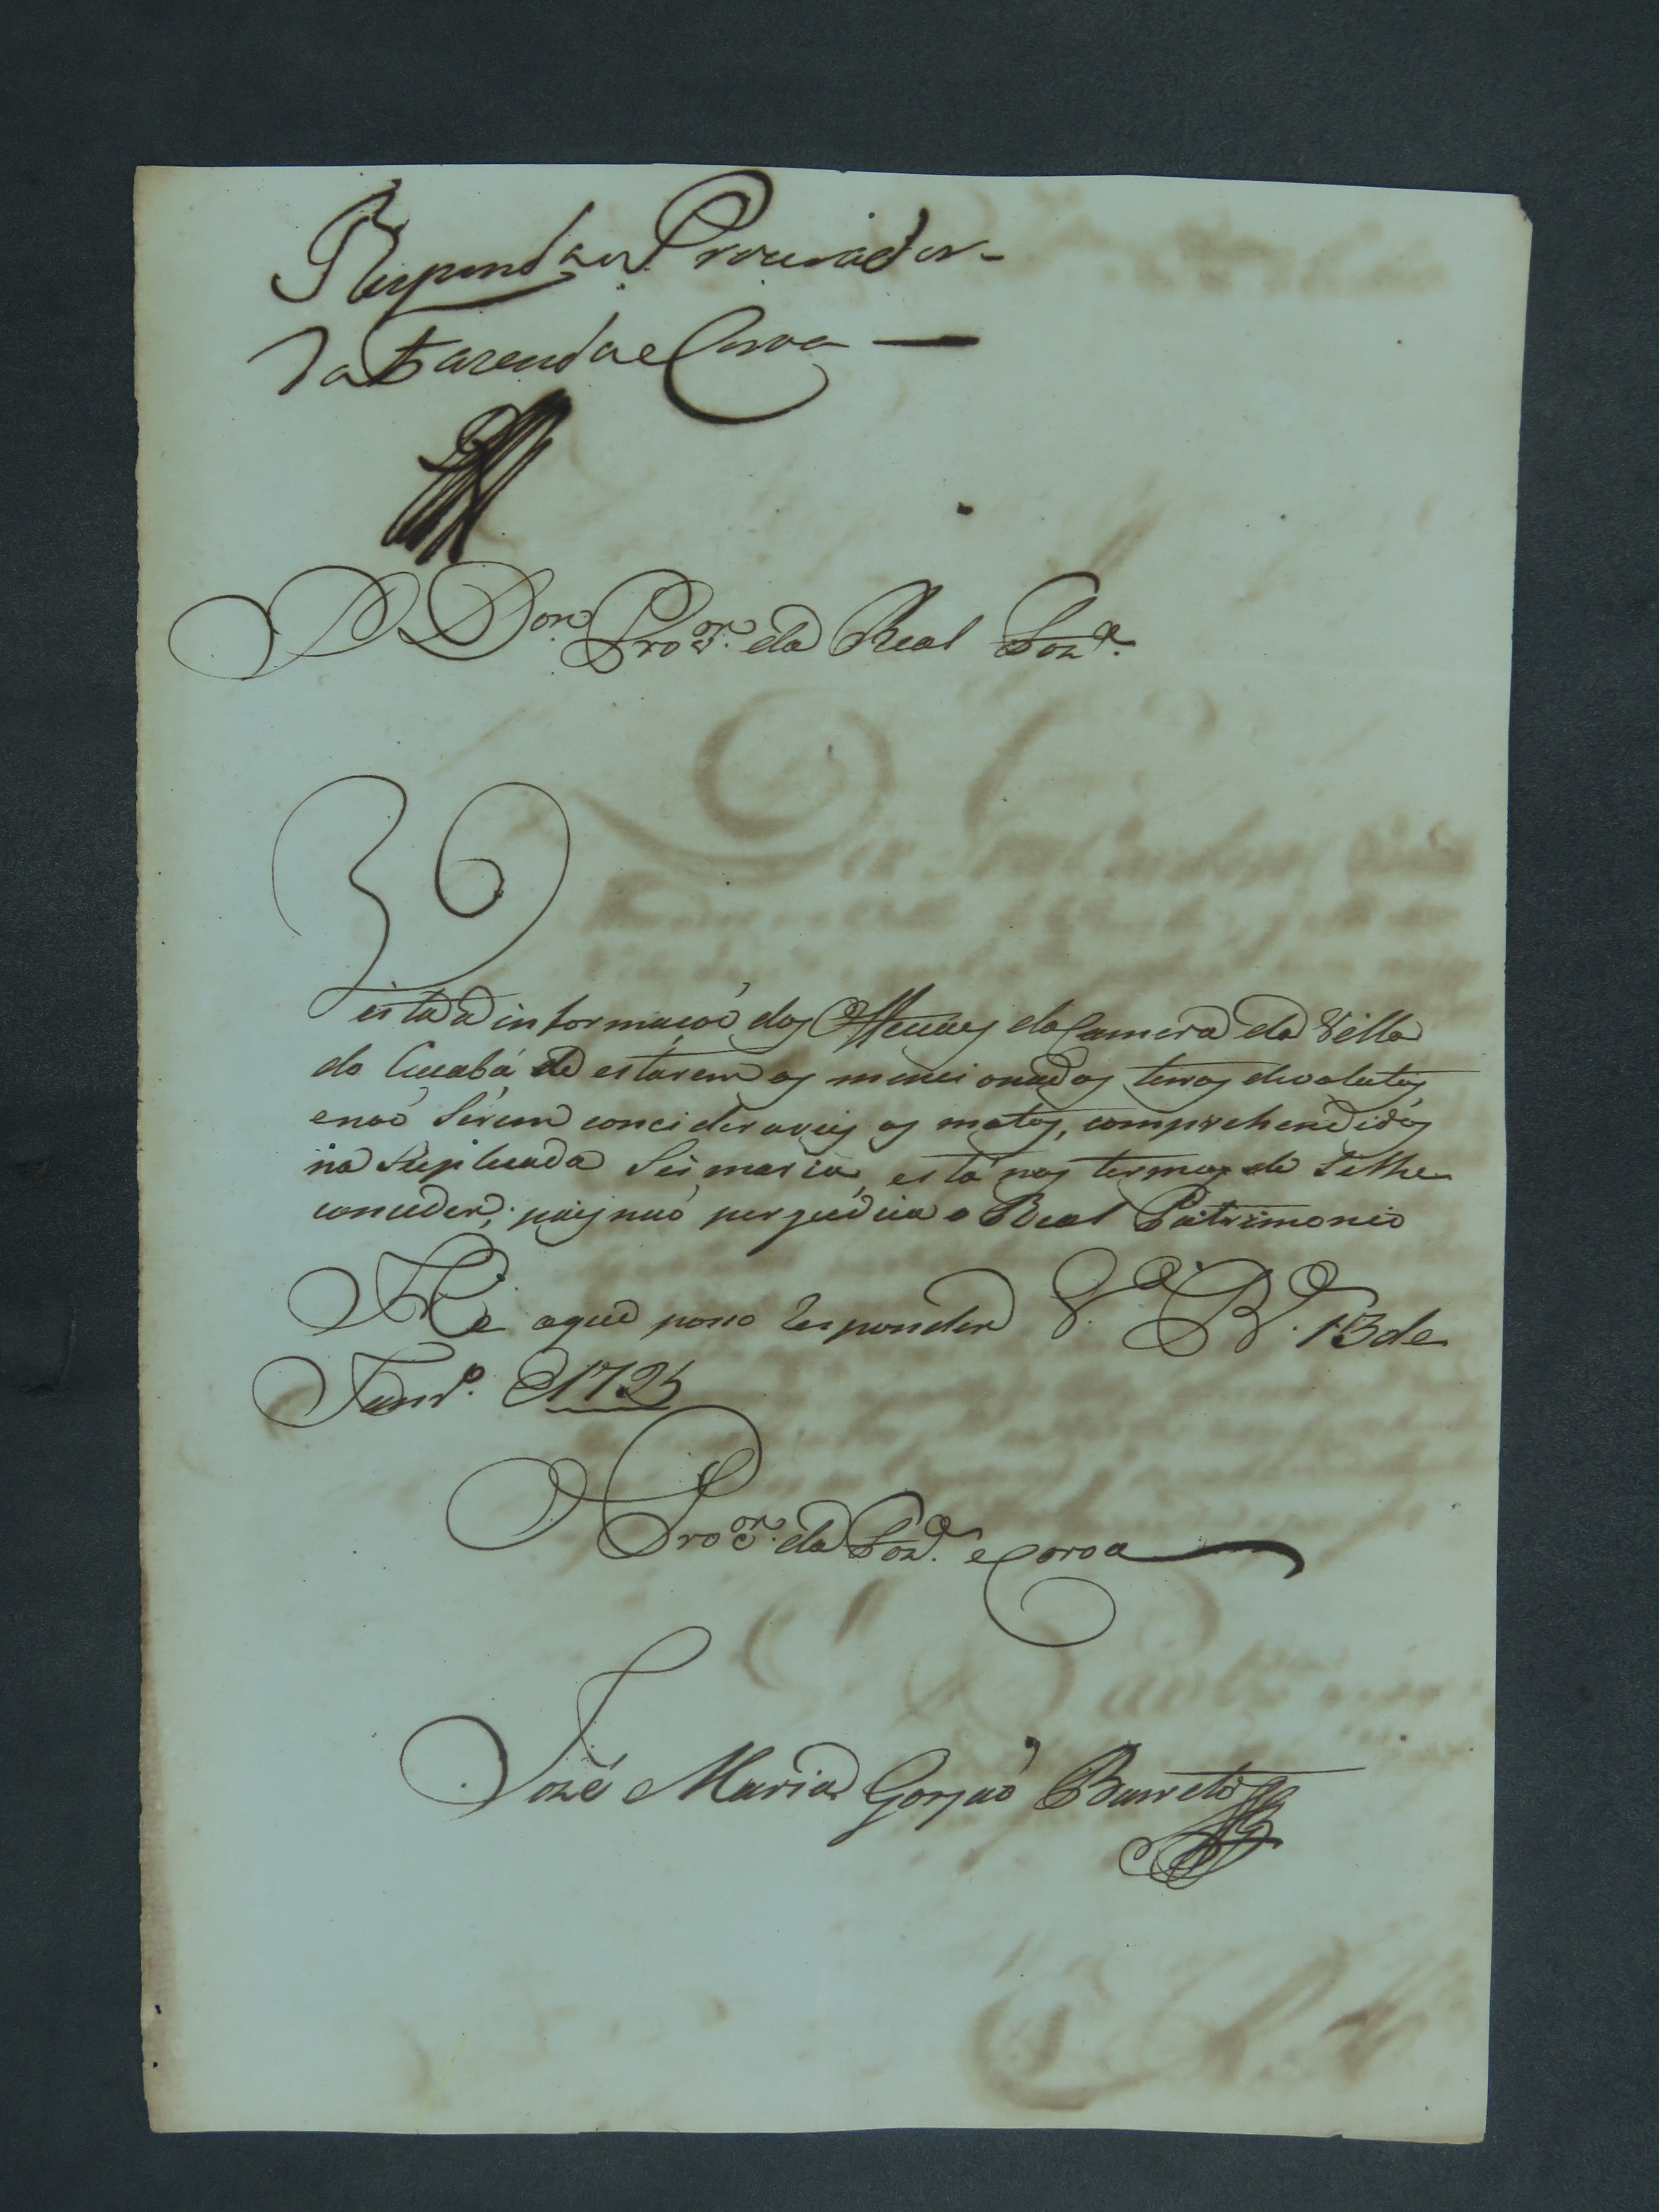 Responda o Procurador
da Fazenda e Coroa
Dor. Proor. da Real Fazda.
Vista a informaçaõ dos Officiaes da Camera da Villa
do Cuiabá de estarem as mencionadas terras devolutas
e naõ serem concideraveis os matos, comprehendidos
na Supleicada Sismaria, está nos termos de se lhe
conceder; pois naõ perjudica o Real Patrimonio
He o que posso responder Va. Ba. 13 de
Janro. 1795
O Proor. da Fazda. e Coroa
Jozé Maria Gorjaõ Barreto